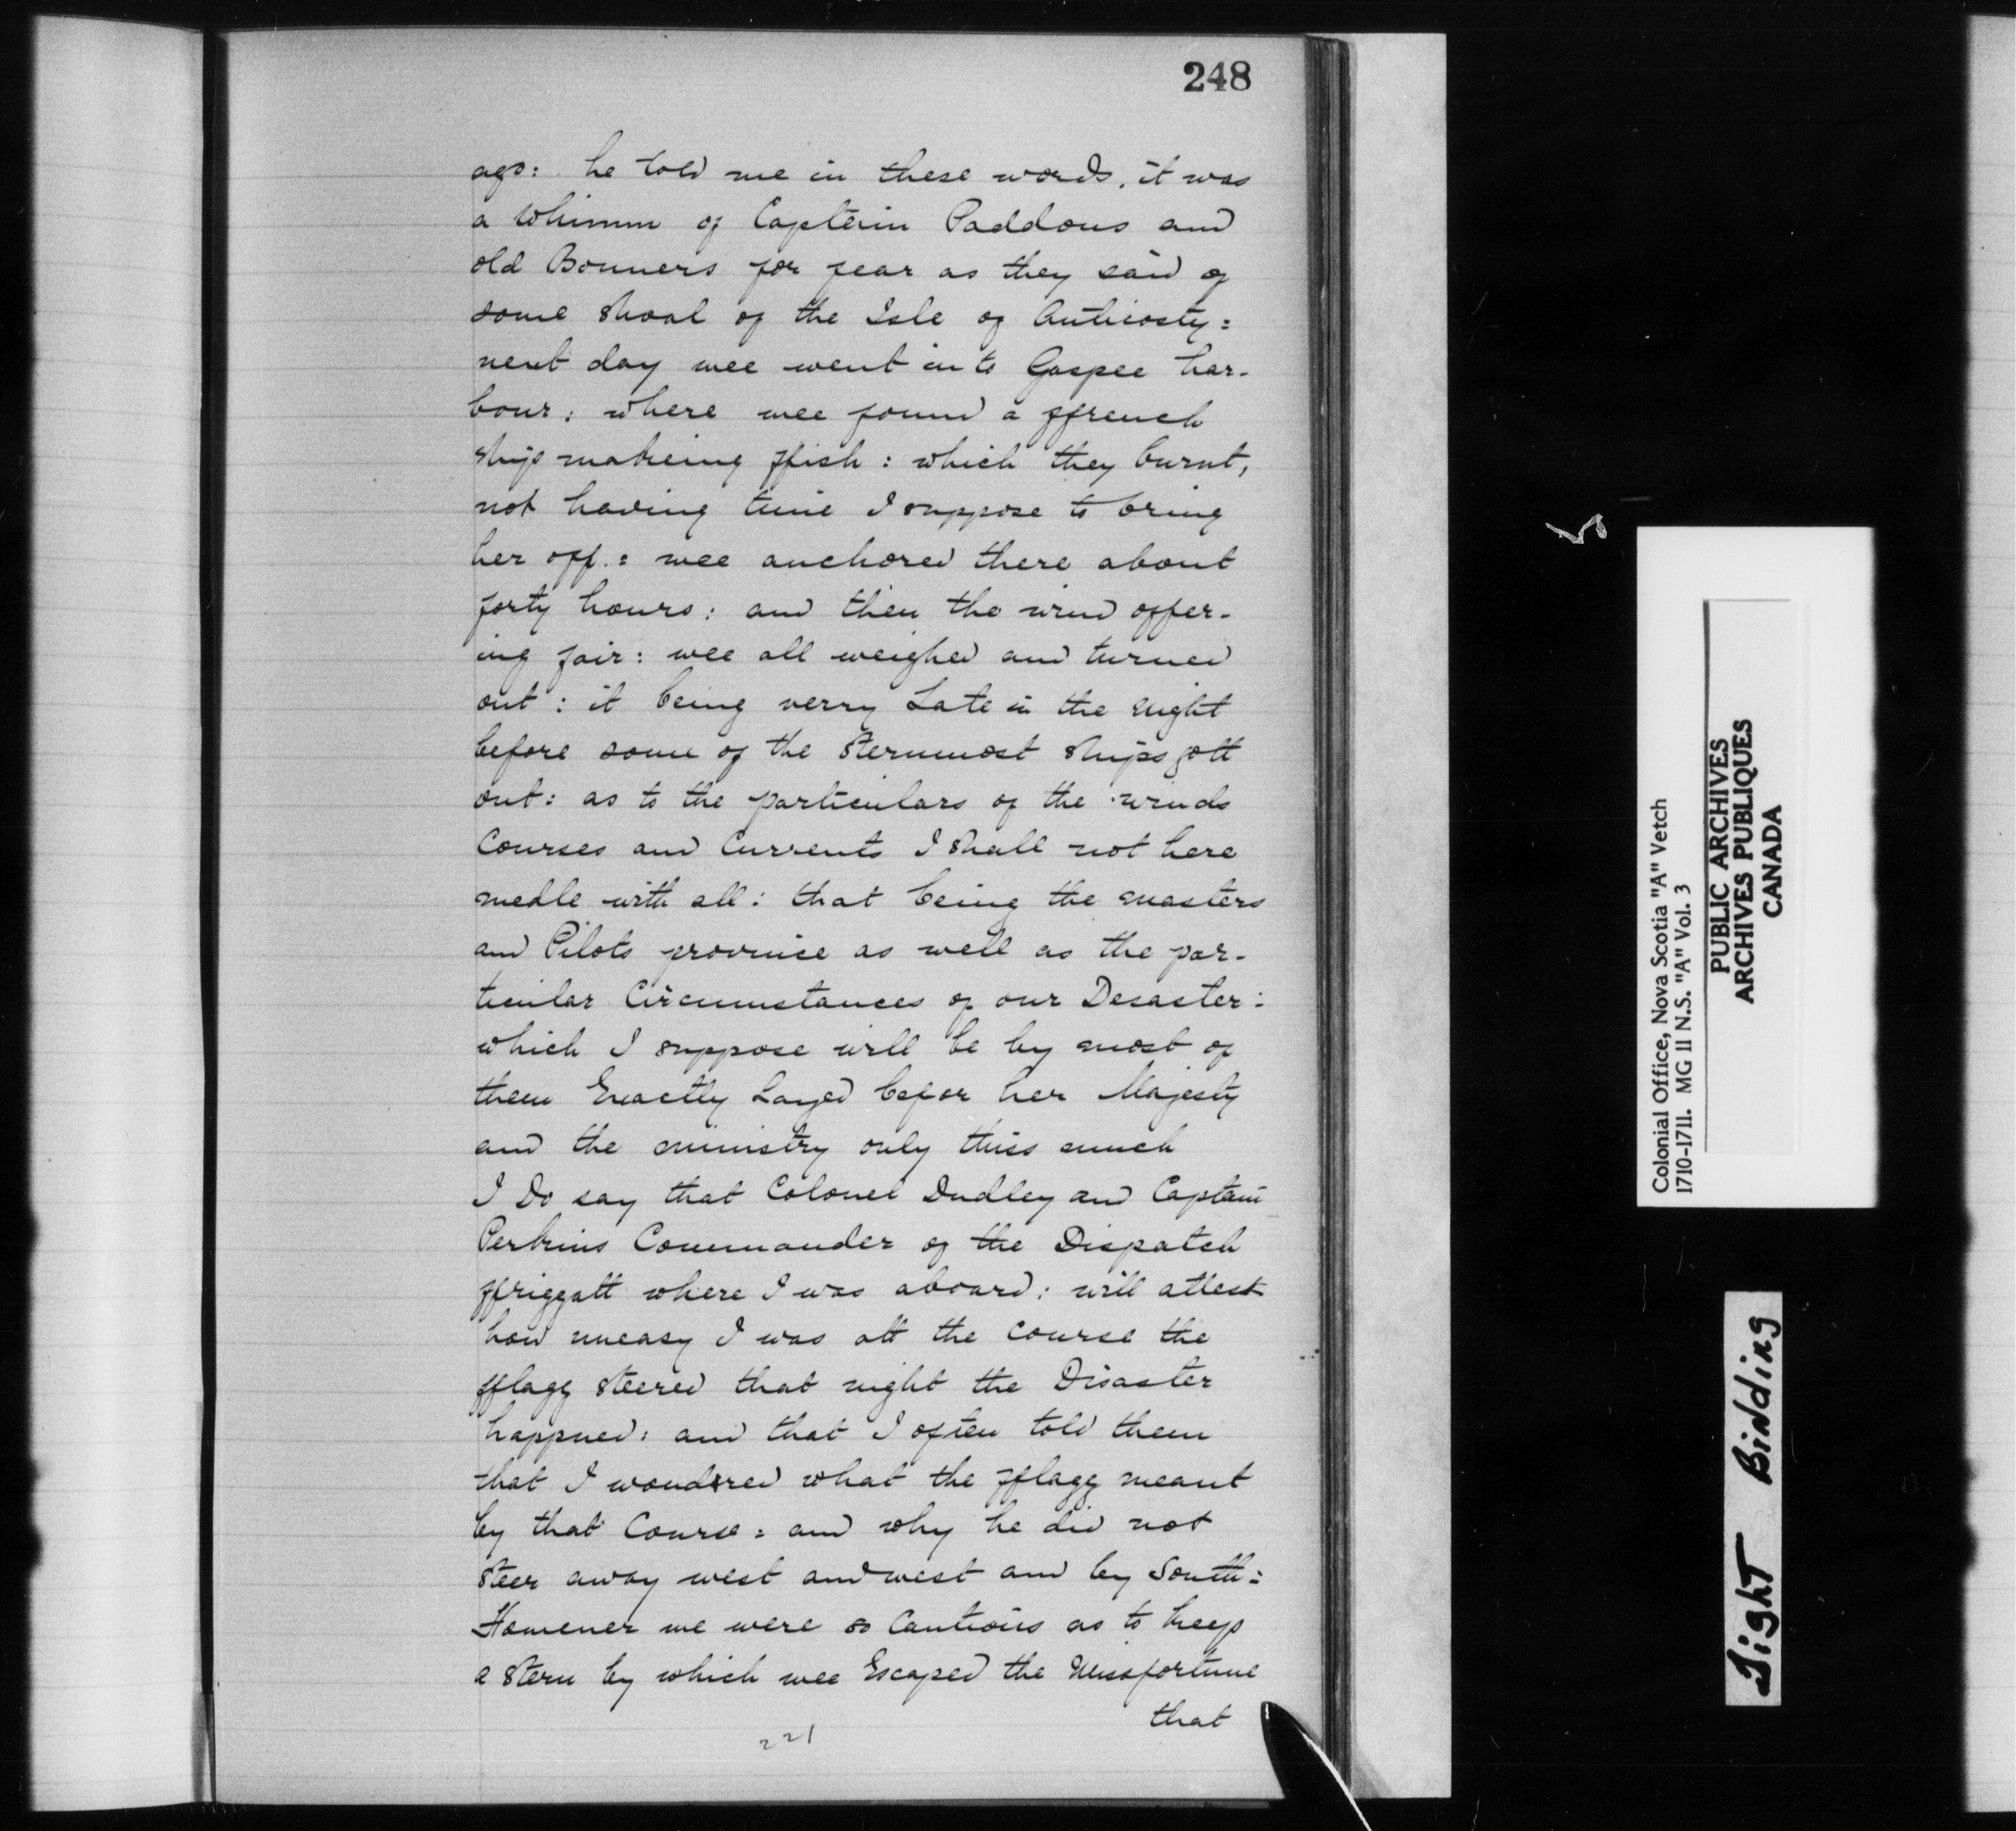 248
ago: he told me in these words, it was
a whimm of Captain Paddons and
old Bonners for fear as they said of
some shoal of the Isle of Anticosty:
next day wee went in to Gaspee har-
bour: where wee found a ffrench
ship makeing ffish: which they burnt,
not having time I suppose to bring
her off.: wee anchored there about
forty hours: and then the wind offer-
ing fair: wee all weighed and turned
out: it being verry Late in the night
before some of the sternmost ships gott
out: as to the particulars of the winds
Courses and Currents I shall not here
medle with all: that being the masters
and Pilots province as well as the par-
ticular Circumstances of our Desaster:
which I suppose will be by most of
them Exactly Layed befor her Majesty
and the ministry only thiss much
I Do say that Colonel Dudley and Captain
Perkins Commander of the Dispatch
ffriggatt where I was aboard: will attest
how uneasy I was att the course the
fflagg steered that night the Disaster
happned: and that I often told them
that I wondered what the fflagg meant
by that Course: and why he did not
steer away west and west and by South:
However we were so Cautious as to keep
a stern by which wee Escaped the Missfortune
that
221
Colonial Office, Nova Scotia "A" Vetch
1710-1711. MG 11 N.S. "A" Vol. 3
PUBLIC ARCHIVES
ARCHIVES PUBLIQUES
CANADA
Tight Bidding